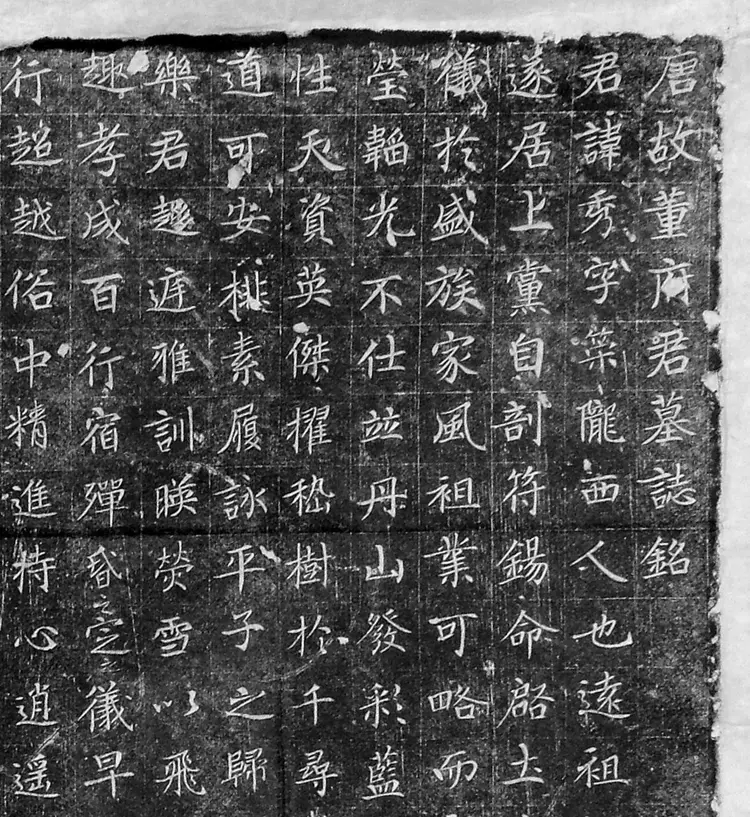 唐故董府君墓誌銘
君諱秀字榮隴西人也遠祖
遂居上黨自剖符錫命啓土
儀於盛族家風祖業可略而
瑩韜光不仕並丹山發彩藍
性天資英傑擢嵇樹於千尋
道可安排素履詠平子之歸
樂君趍遊雅訓暎熒雪以飛
趣孝成百行宿殫昏之定之儀早
行超越俗中精進特心逍遥